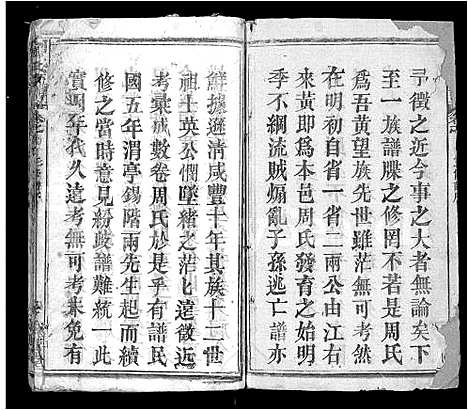 尋徵之近今事之大者無論矣下
至一族譜牒之修罔不若是周氏
爲吾黃望族先世雖茫無可考然
在明初自省一省二兩公由江右
來黃即爲本邑周氏發育之始明
季不綱流賊煽亂子孫逃亡譜亦
鮮據遜清咸豐十年其族十二世
祖士英公憫墜緒之茫乚遠徵近
考彙成數卷周氏於是乎有譜民
國五年渭亭錫階兩先生起而續
修之當時意見紛歧譜難統一此
實周年代久遠考無可考未免有